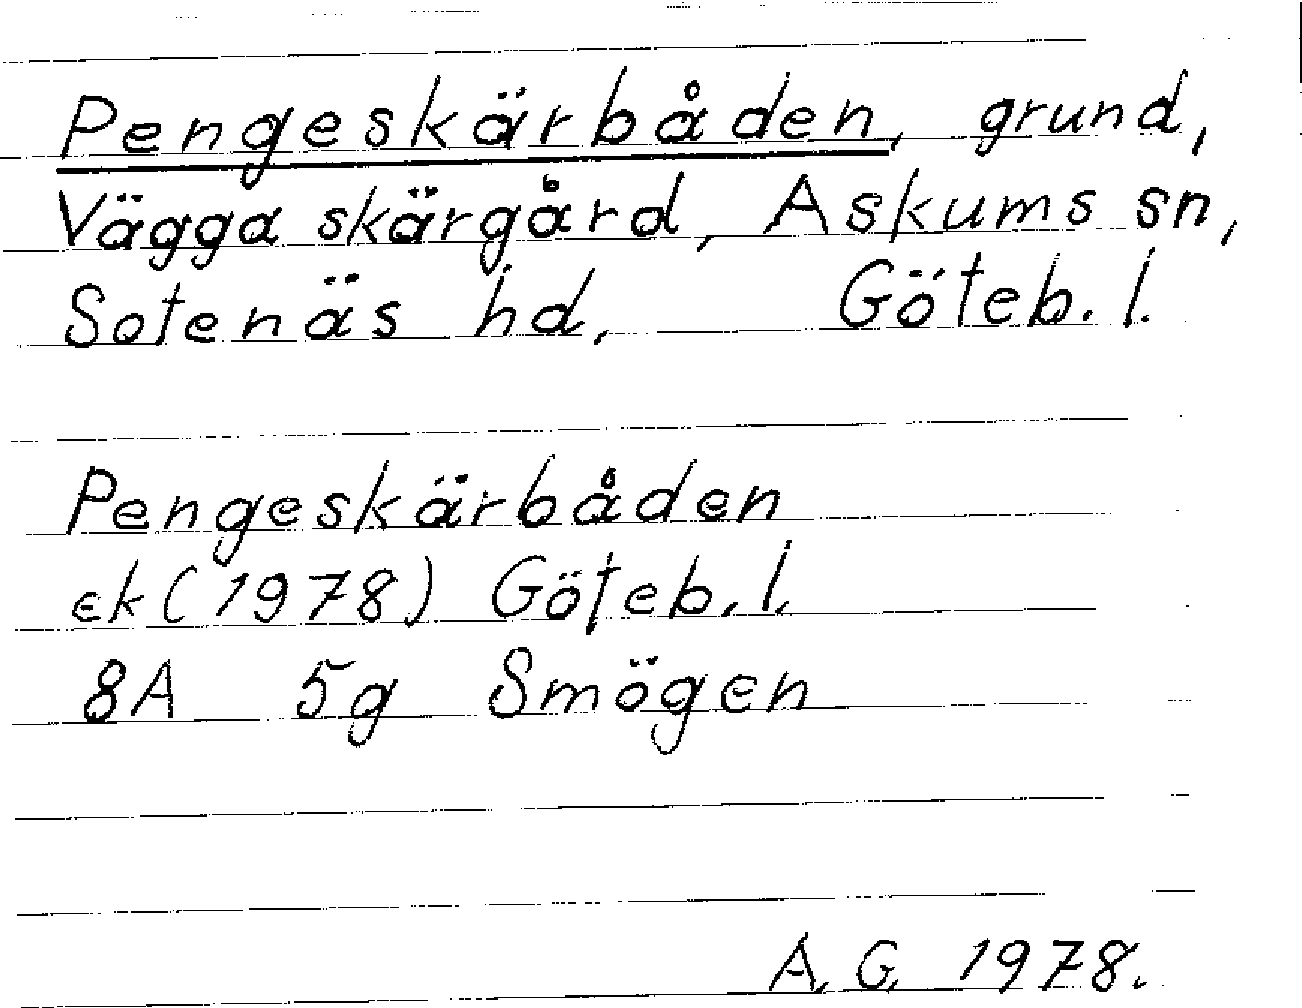 Pengeskärbåden, grund,
Vägga skärgård, Askums sn,
Sotenäs hd, Göteb. l.
Pengeskärbåden
ek (1978) Göteb. l.
8A 5g Smögen
A. G. 1978.